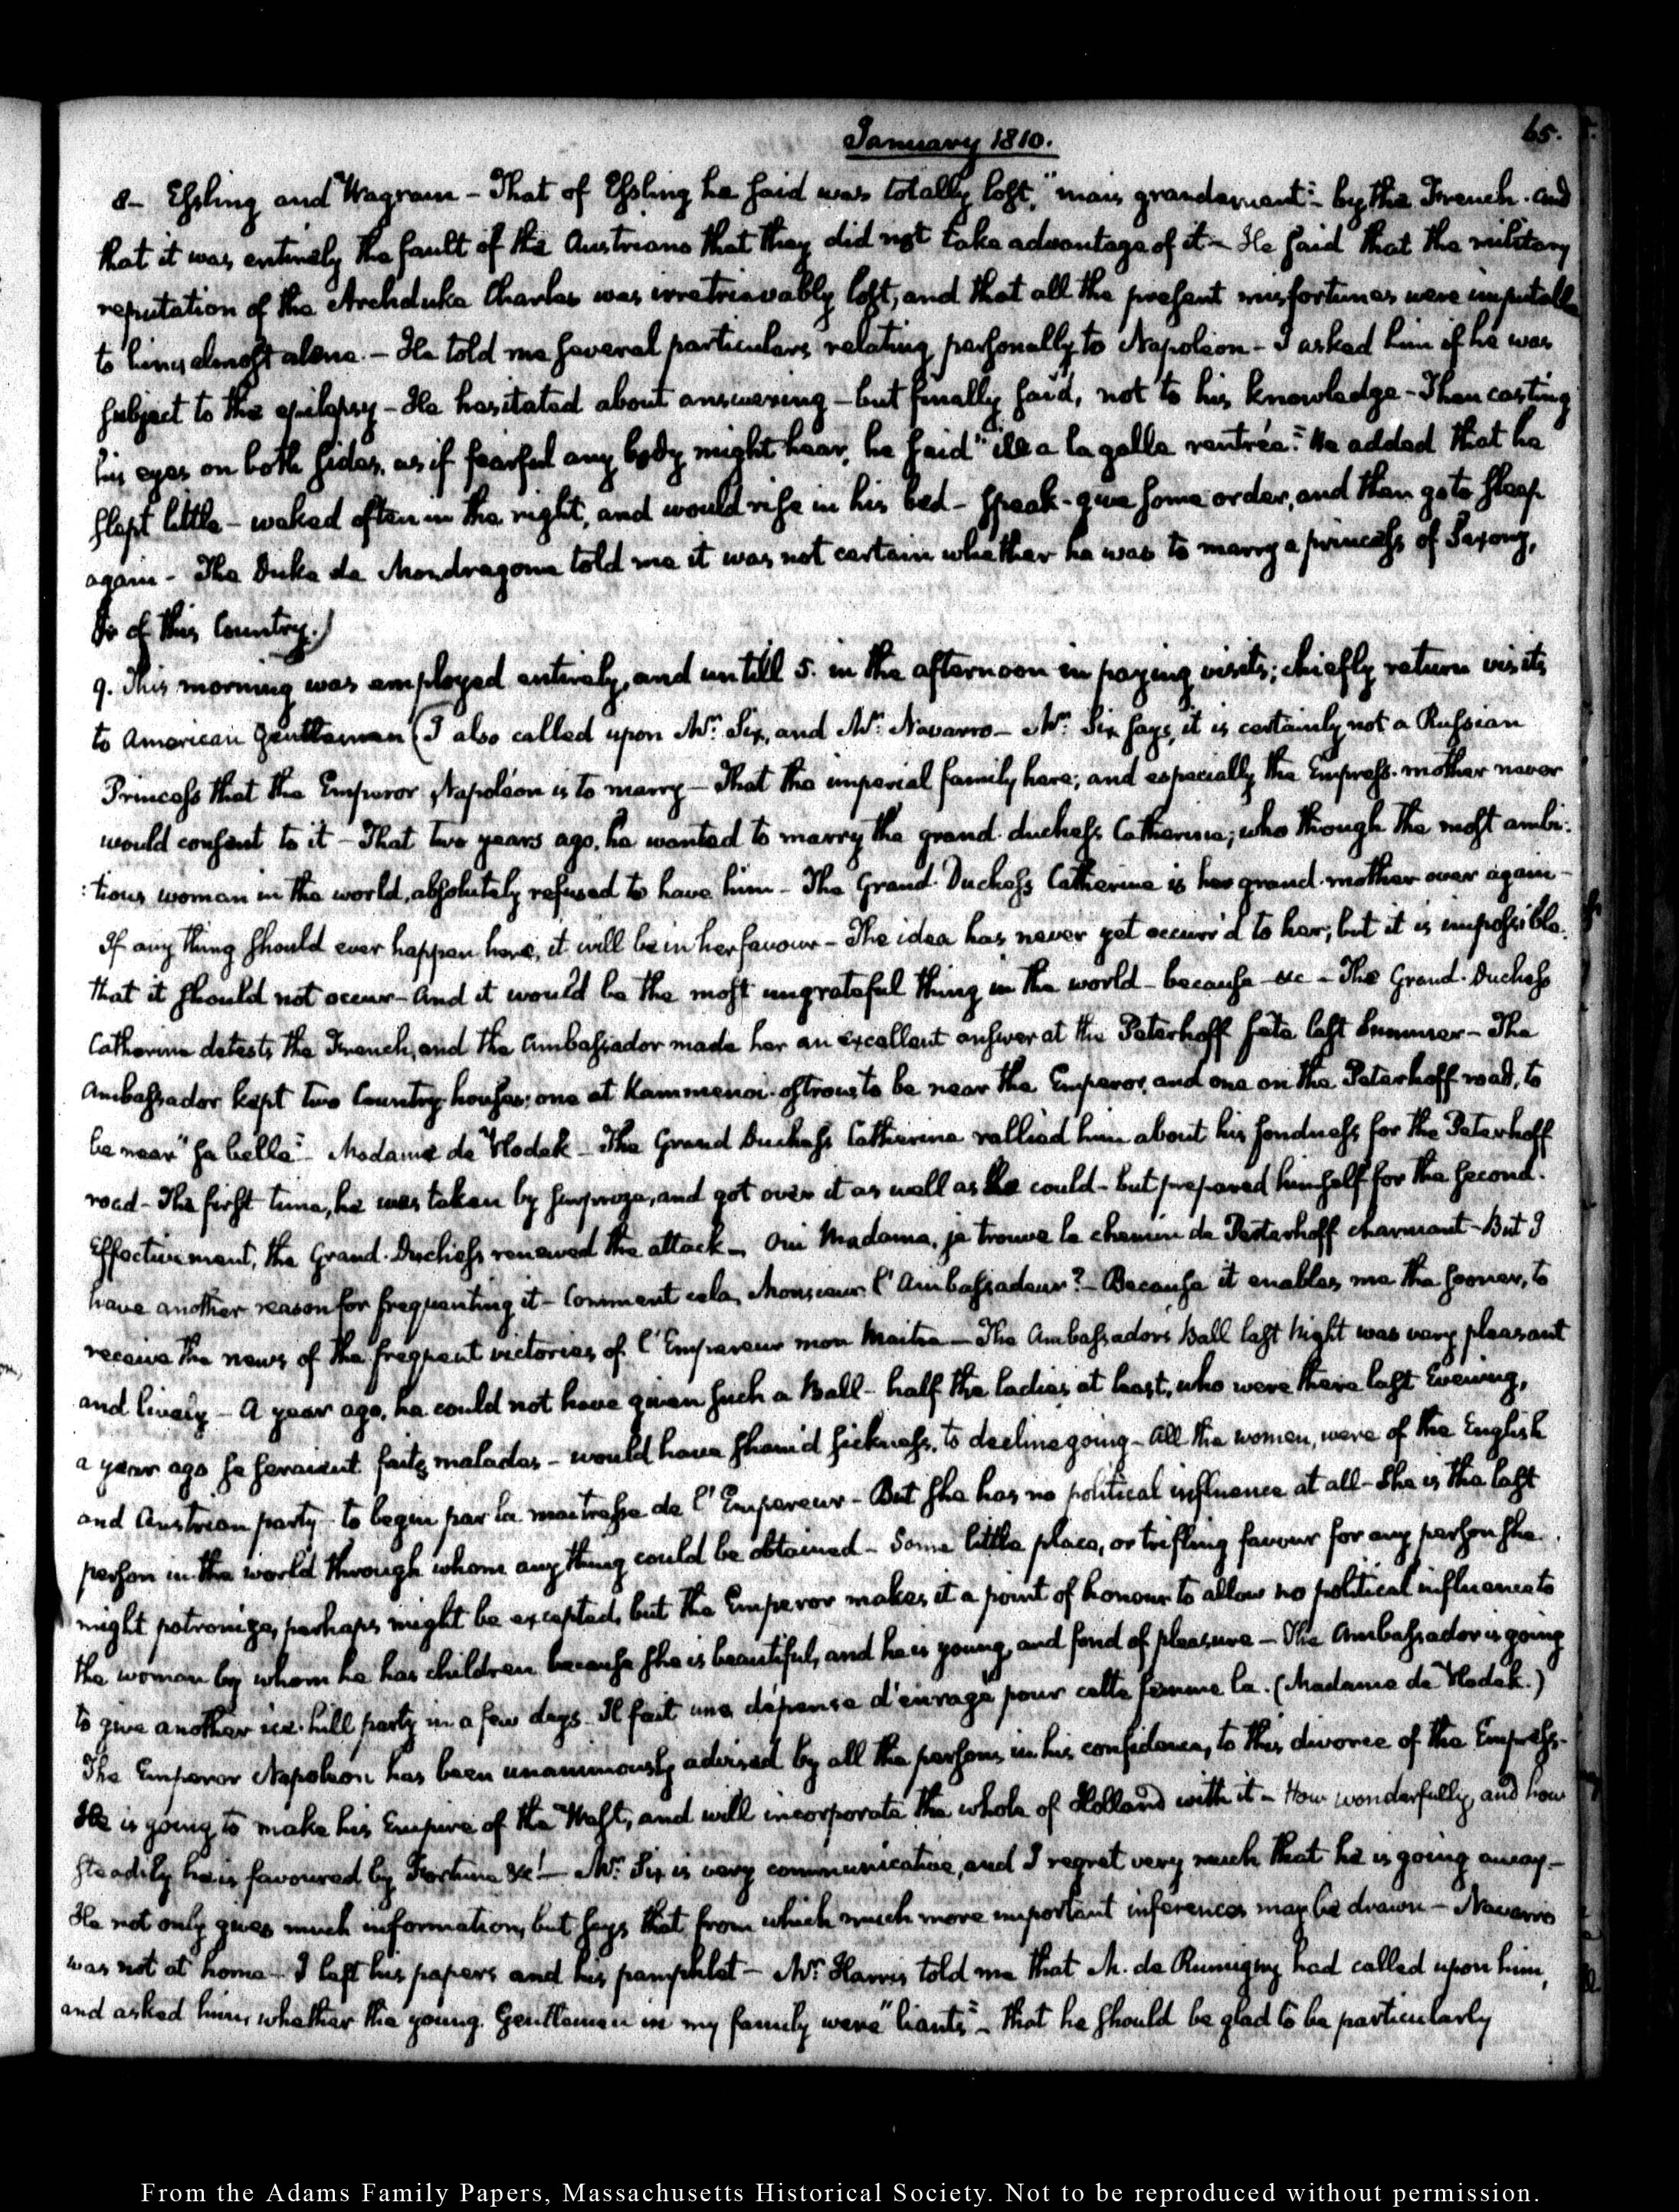 January 1810.
65.
8– Essling and Wagram – That of Essling he said was totally lost, "mais grandement" – by the French – and
that it was entirely the fault of the Austrians that they did not take advantage of it – He said that the military
reputation of the Archduke Charles was irretrievably lost, and that all the present misfortunes were imputable
to him, almost alone. – He told me several particulars relating personally to Napoleon – I asked him if he was
subject to the epilepsy – He hesitated about answering – but finally said, not to his knowledge – Then casting
his eyes on both sides, as if fearful any body might hear, he said "il a la galle rentrée." He added that he
slept little – waked often in the night, and would rise in his bed – speak – give some order, and then go to sleep
again – The Duke de Mondragone told me it was not certain whether he was to marry a princess of Saxony,
or of this Country.)
9. This morning was employed entirely, and untill 5. in the afternoon in paying visits; chiefly return visits
to American Gentlemen (I also called upon Mr. Six, and Mr. Navarro – Mr. Six says, it is certainly not a Russian
Princess that the Emperor Napoleon is to marry – That the imperial family here; and especially the Empress-mother never
would consent to it – That two years ago, he wanted to marry the grand-duchess Catherine; who though the most ambi:
:tious woman in the world, absolutely refused to have him – The Grand-Duchess Catherine is her grand-mother over again –
If any thing should ever happen here, it will be in her favour – The idea has never yet occurr'd to her; but it is impossible
that it should not occur – And it would be the most ungrateful thing in the world – because &c – The Grand-Duchess
Catherine detests the French, and the Ambassador made her an excellent answer at the Peterhoff fête last Summer – The
Ambassador kept two Country-houses; one at Kammenoi-ostrow to be near the Emperor, and one on the Peterhoff road, to
be near "sa belle" – Madame de Vlodek – The Grand Duchess Catherine rallied him about his fondness for the Peterhoff
road – The first time, he was taken by surprize, and got over it as well as he could – but prepared himself for the second.
Effectivement, the Grand-Duchess renewed the attack – Oui Madame, je trouve le chemin de Peterhoff charmant – But I
have another reason for frequenting it – Comment cela, Monsieur l'Ambassadeur? – Because it enables me the sooner, to
receive the news of the frequent victories of l'Empereur mon Maitre – The Ambassador's Ball last night was very pleasant
and lively – A year ago, he could not have given such a Ball – half the ladies at least, who were there last Evening,
a year ago se seraient faites malades – would have sham'd sickness, to decline going – All the women, were of the English
and Austrian party – to begin par la maitresse de l'Empereur – But she has no political influence at all – She is the last
person in the world through whom any thing could be obtained – Some little place, or trifling favour for any person she
might patronize, perhaps might be excepted, but the Emperor makes it a point of honour to allow no political influence to
the woman by whom he has children because she is beautiful, and he is young, and fond of pleasure – The Ambassador is going
to give another ice-hill party in a few days – Il fait une dépense d'enragé pour cette femme la. (Madame de Vlodek.)
The Emperor Napoleon has been unanimously advised by all the persons in his confidence, to this divorce of the Empress –
He is going to make his Empire of the West, and will incorporate the whole of Holland with it – How wonderfully, and how
steadily he is favoured by Fortune &c! – Mr. Six is very communicative, and I regret very much that he is going away –
He not only gives much information, but says that from which much more important inferences may be drawn – Navarro
was not at home – I left his papers and his pamphlet – Mr. Harris told me that M. de Rumigny had called upon him,
and asked him, whether the young Gentlemen in my family were "liants" – that he should be glad to be particularly
From the Adams Family Papers, Massachusetts Historical Society. Not to be reproduced without permission.